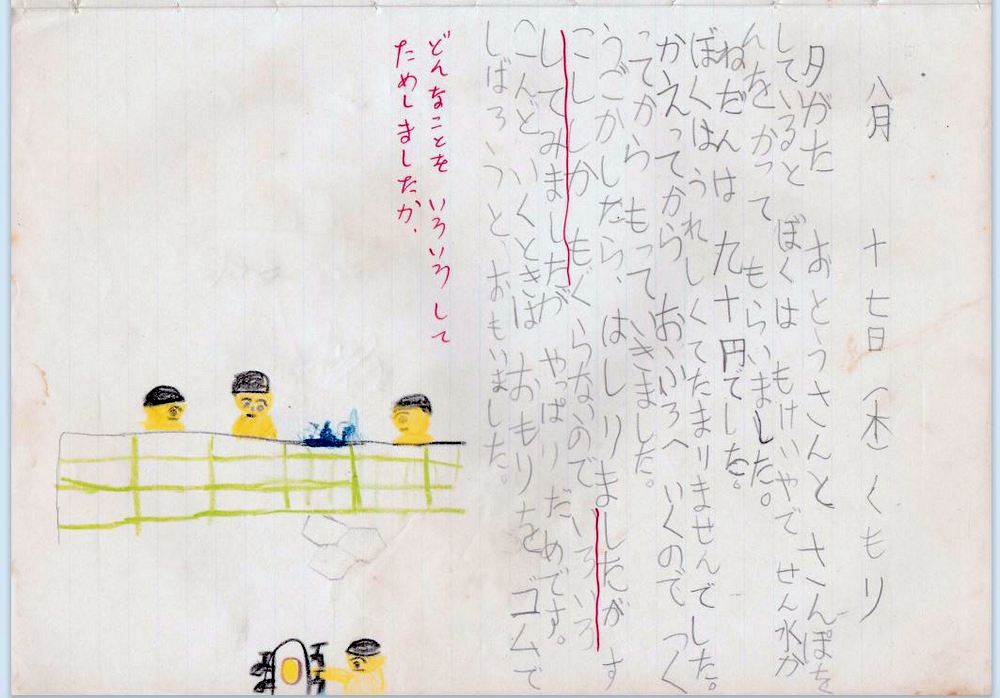 八月 十七日(木)くもり
夕がた おとうさんと さんぽを
しているとぼくは もけいやで せん水か
んをかって もらいました。
ねだんは 九十円でした。
ぼくは うれしくてたまりませんでした。
かえってから おふろへ いくので つく
ってから もって いきました。
うごかしたら、はしりましたが す
こししか もぐらないので いろいろ
してみましたが やっぱり だめです。
こんど いくときは おもりを ゴムで
しばろうと、おもいました。
どんなことを いろいろして
ためしましたか。